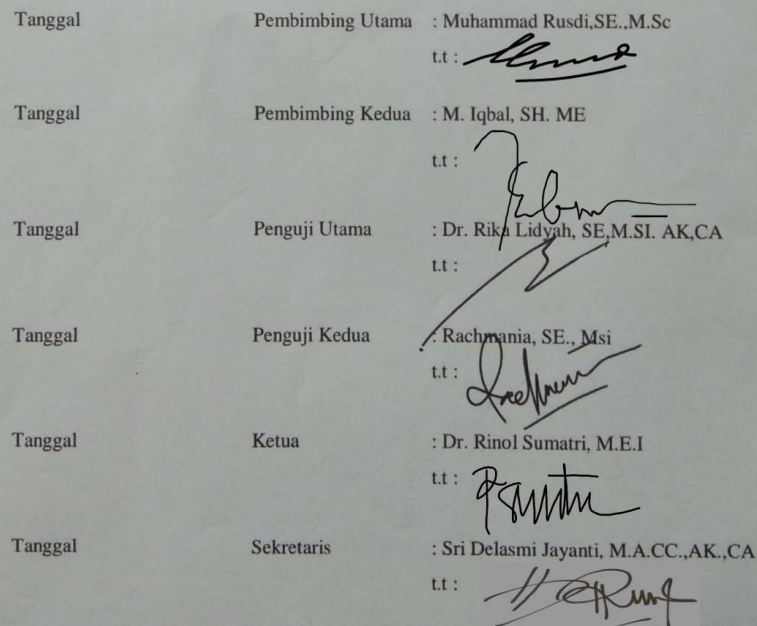 Tanggal Pembimbing Utama : Muhammad Rusdi,SE.,M.Sc
t.t :
Tanggal Pembimbing Kedua : M. Iqbal, SH. ME
t.t :
Tanggal Penguji Utama : Dr. Rika Lidyah, SE,M.SI. AK,CA
t.t :
Tanggal Penguji Kedua : Rachmania, SE., Msi
t.t :
Tanggal Ketua : Dr. Rinol Sumatri, M.E.I
t.t :
Tanggal Sekretaris : Sri Delasmi Jayanti, M.A.CC.,AK.,CA
t.t :